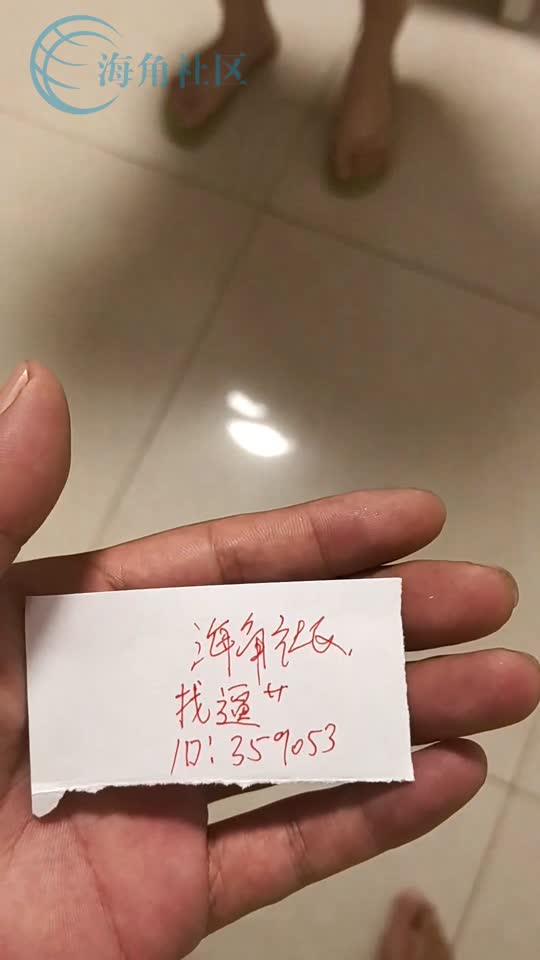 海角社区
海角社区
找逼
ID: 359053